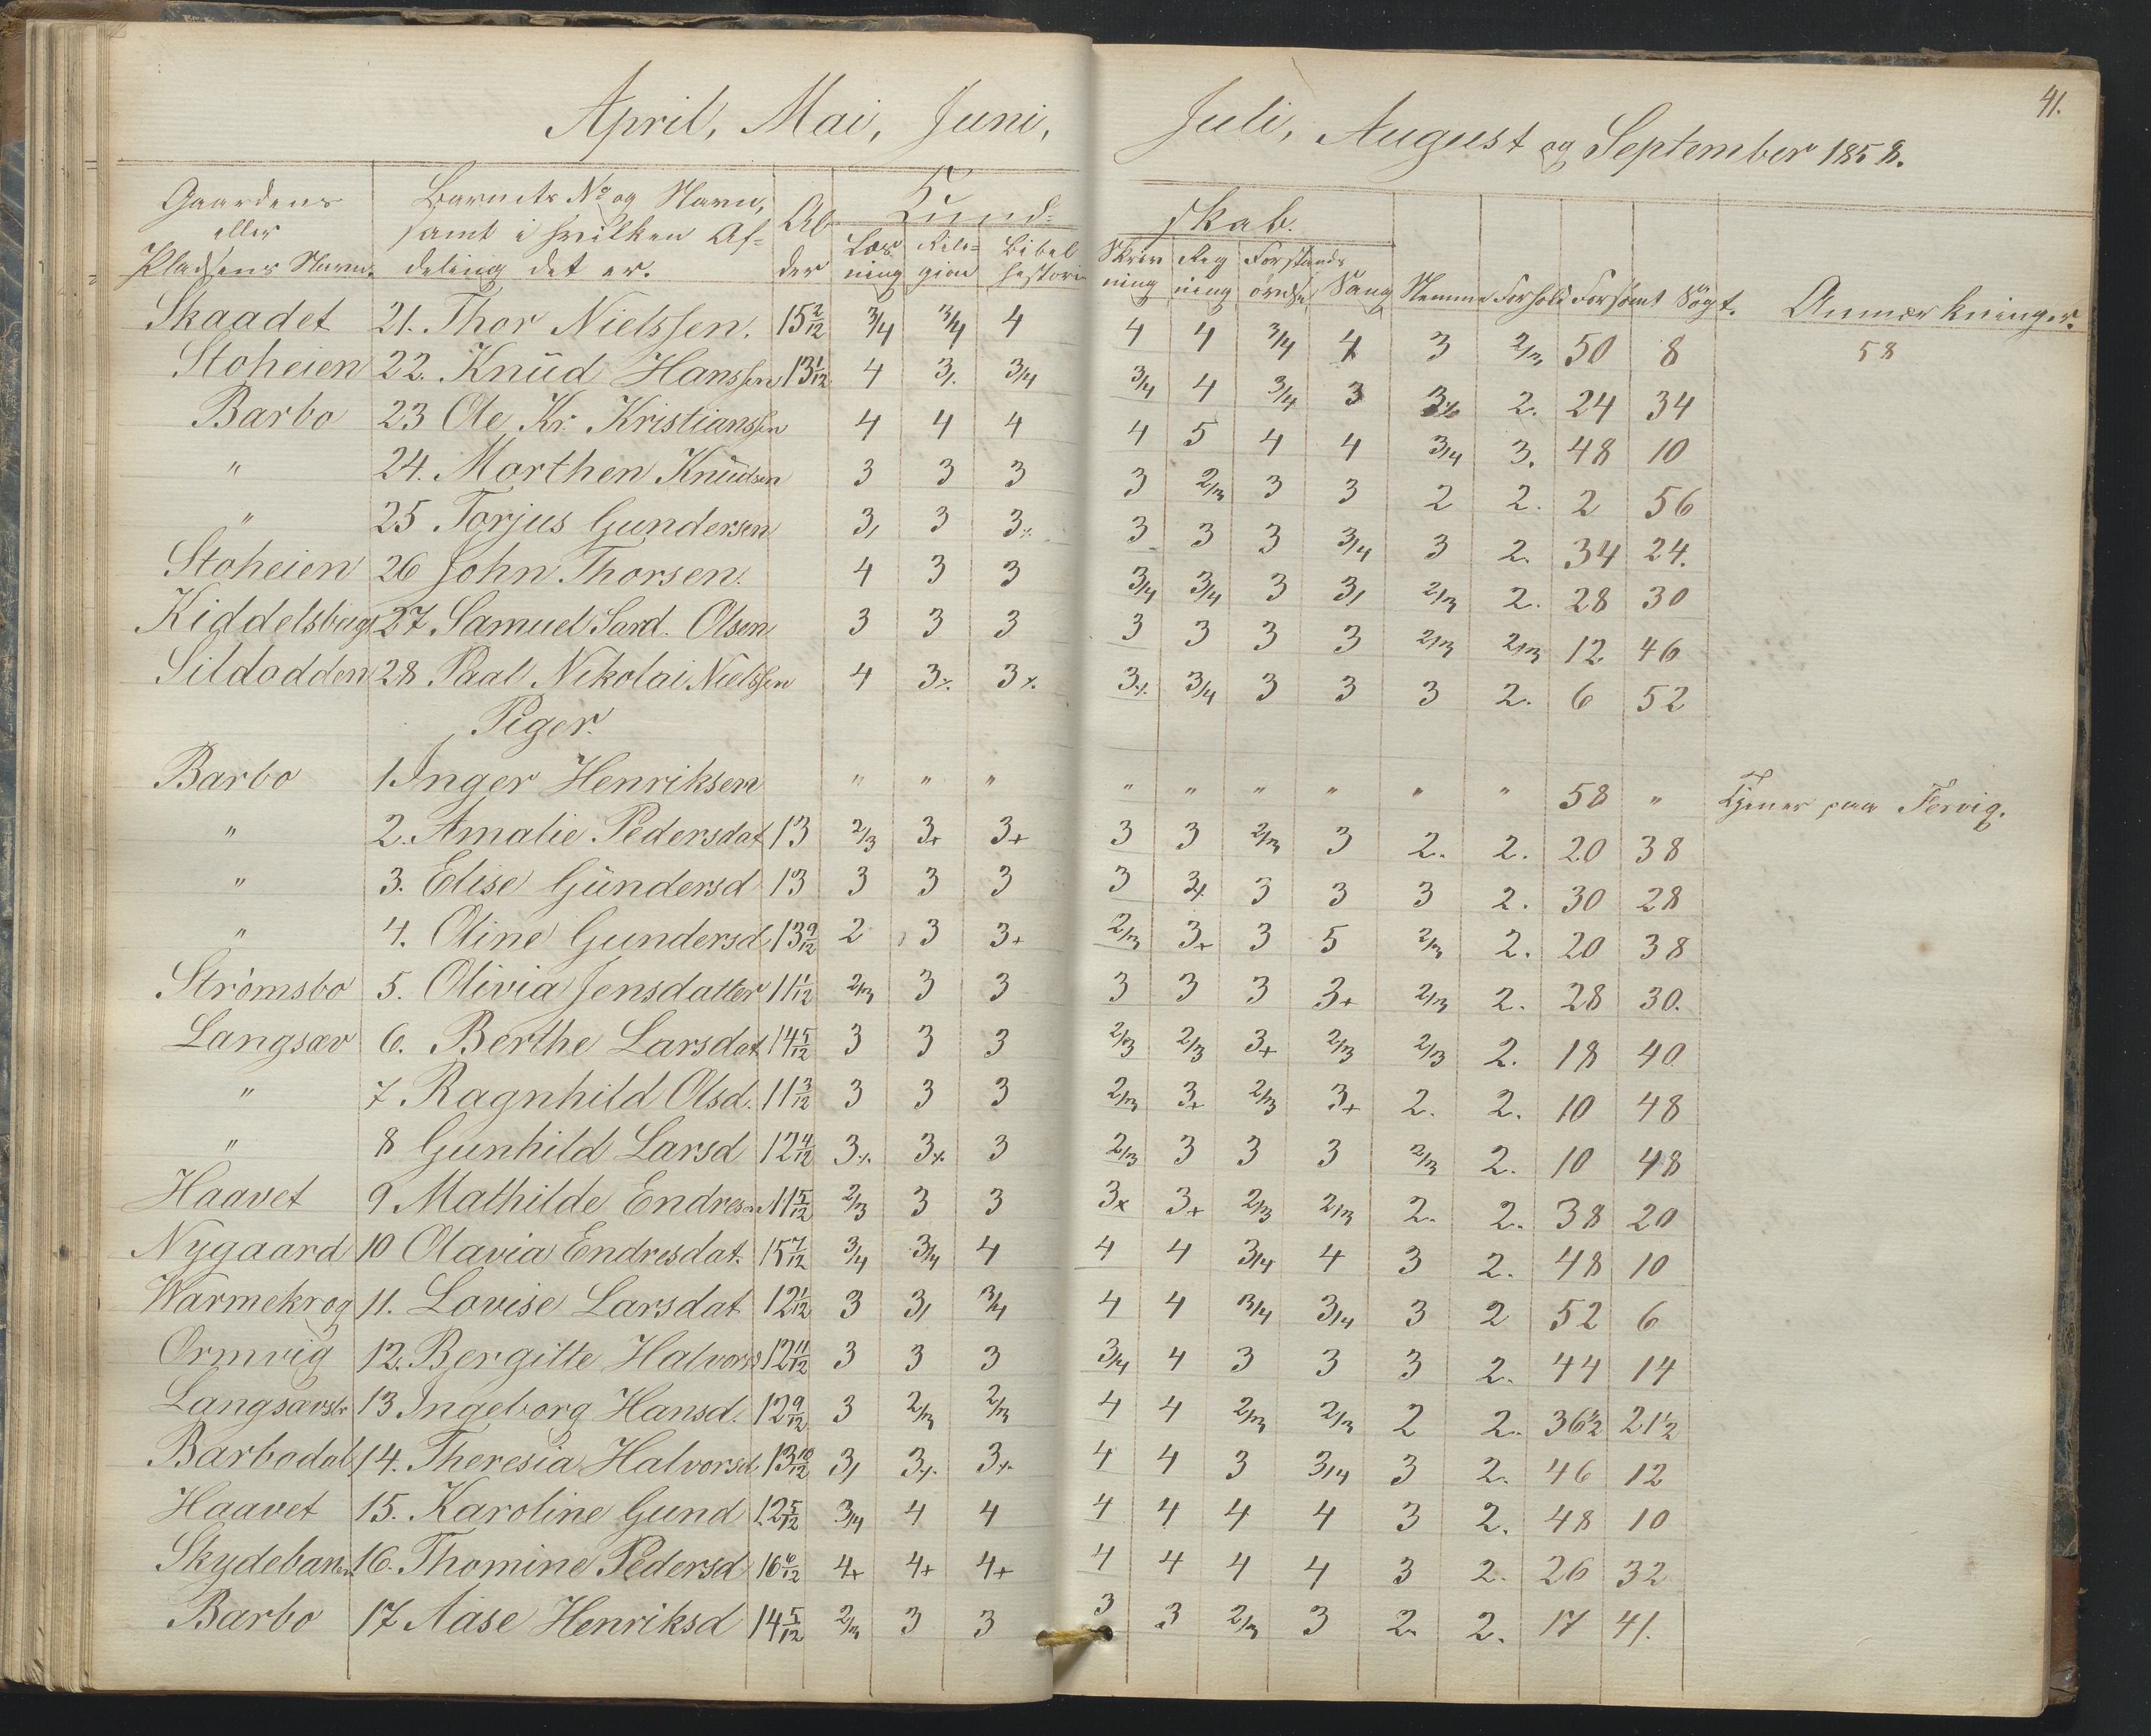 41.
April, Mai, Juni, Juli, August og September 1858.
Gaardens eller Pladsens Navn. Barnets No og Navn, samt i hvilken Afdeling det er. Alder Kundskab. Læsning Religion Bibelhistorie Skrivning Regning Forstandsøvelse Sang Nemme Forhold Forsømt Søgt. Anmærkninger.
Skaadet 21. Thor Nielssen. 15 2/12 3/4 3/4 4 4 4 3/4 4 3 2/3 50 8 58
Stoheien 22. Knüd Hanssen 13 1/12 4 3/. 3/4 3/4 4 3/4 3 2. 24 34
Barbo 23 Ole Kr. Kristianssen 4 4 4 4 5 4 4 3/4 3. 48 10
" 24. Morthen Knüdsen 3 3 3 3 2/3 3 3 2 2. 2 56
" 25 Torjus Gundersen 3/ 3 3% 3 3 3 3/4 3 2. 34 24.
Stoheien 26 John Thorsen. 4 3 3 3/4 3/4 3 3/ 2/3 2. 28 30
Kiddelsberg 27. Samuel Olsen 3 3 3 3 3 3 3 2/3 2/3 12 46
Sildodden 28. Paal Nikolai Nielssen 4 3% 3% 3% 3/4 3 3 3 2. 6 52
Piger.
Barbo 1. Inger Henriksen " " " " " " " " " 58 " Tjener paa Fervig.
" 2. Amalie Pedersdat 13 2/3 3+ 3+ 3 3 2/3 3 2. 2. 20 38
" 3. Elise Gündersd 13 3 3 3 3 3% 3 3 3 2. 30 28
" 4. Oline Gundersd 13 9/12 2 3 3+ 2/3 3+ 3 5 2/3 2. 20 38
Strömsbo 5. Olivia Jensdatter 11 1/12 2/3 3 3 3 3 3 3+ 2/3 2. 28 30.
Langsæv 6. Berthe Larsdat 14 5/12 3 3 3 2/3 2/3 3+ 2/3 2/3 2. 18 40
" 7. Ragnhild Olsd. 11 3/12 3 3 3 2/3 3+ 2/3 3+ 2. 2. 10 48
" 8 Gunhild Larsd 12 4/12 3% 3% 3 2/3 3 3 3 2/3 2. 10 48
Haavet 9 Mathilde Endresen 11 5/12 2/3 3 3 3x 3+ 2/3 2/3 2. 2. 38 20
Nygaard 10 Olavia Endresdat. 15 7/12 3/4 3/4 4 4 4 3/4 4 3 2. 48 10
Warmekrog 11. Lovise Larsdat 12 1/12 3 3/ 3/4 4 4 3/4 3/4 3 2 52 6
Ormvig 12. Bergitte Halvorsd 12 11/12 3 3 3 3/4 4 3 3 3 2. 44 14
Langsævsdr 13 Ingeborg Hansd. 12 9/12 3 2/3 2/3 4 4 2/3 2/3 2 2. 36 1/2 21 1/2
Barbodal 14. Theresia Halvorsd. 13 10/12 3/ 3% 3% 4 4 3 3/4 3 2. 46 12
Haavet 15. Karoline Gund 12 5/12 3/4 4 4 4 4 4 4 3 2. 48 10
Skydebanen 16. Thomine Pedersd 16 6/12 4+ 4+ 4+ 4 4 4 4 3 2. 26 32
Barbo 17 Aase Henriksd 14 5/12 2/3 3 3 3 3 2/3 3 2. 2. 17 41.